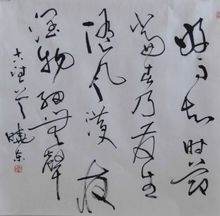 好雨知时节
当春乃发生
随风潜夜
润物细无声
晓东